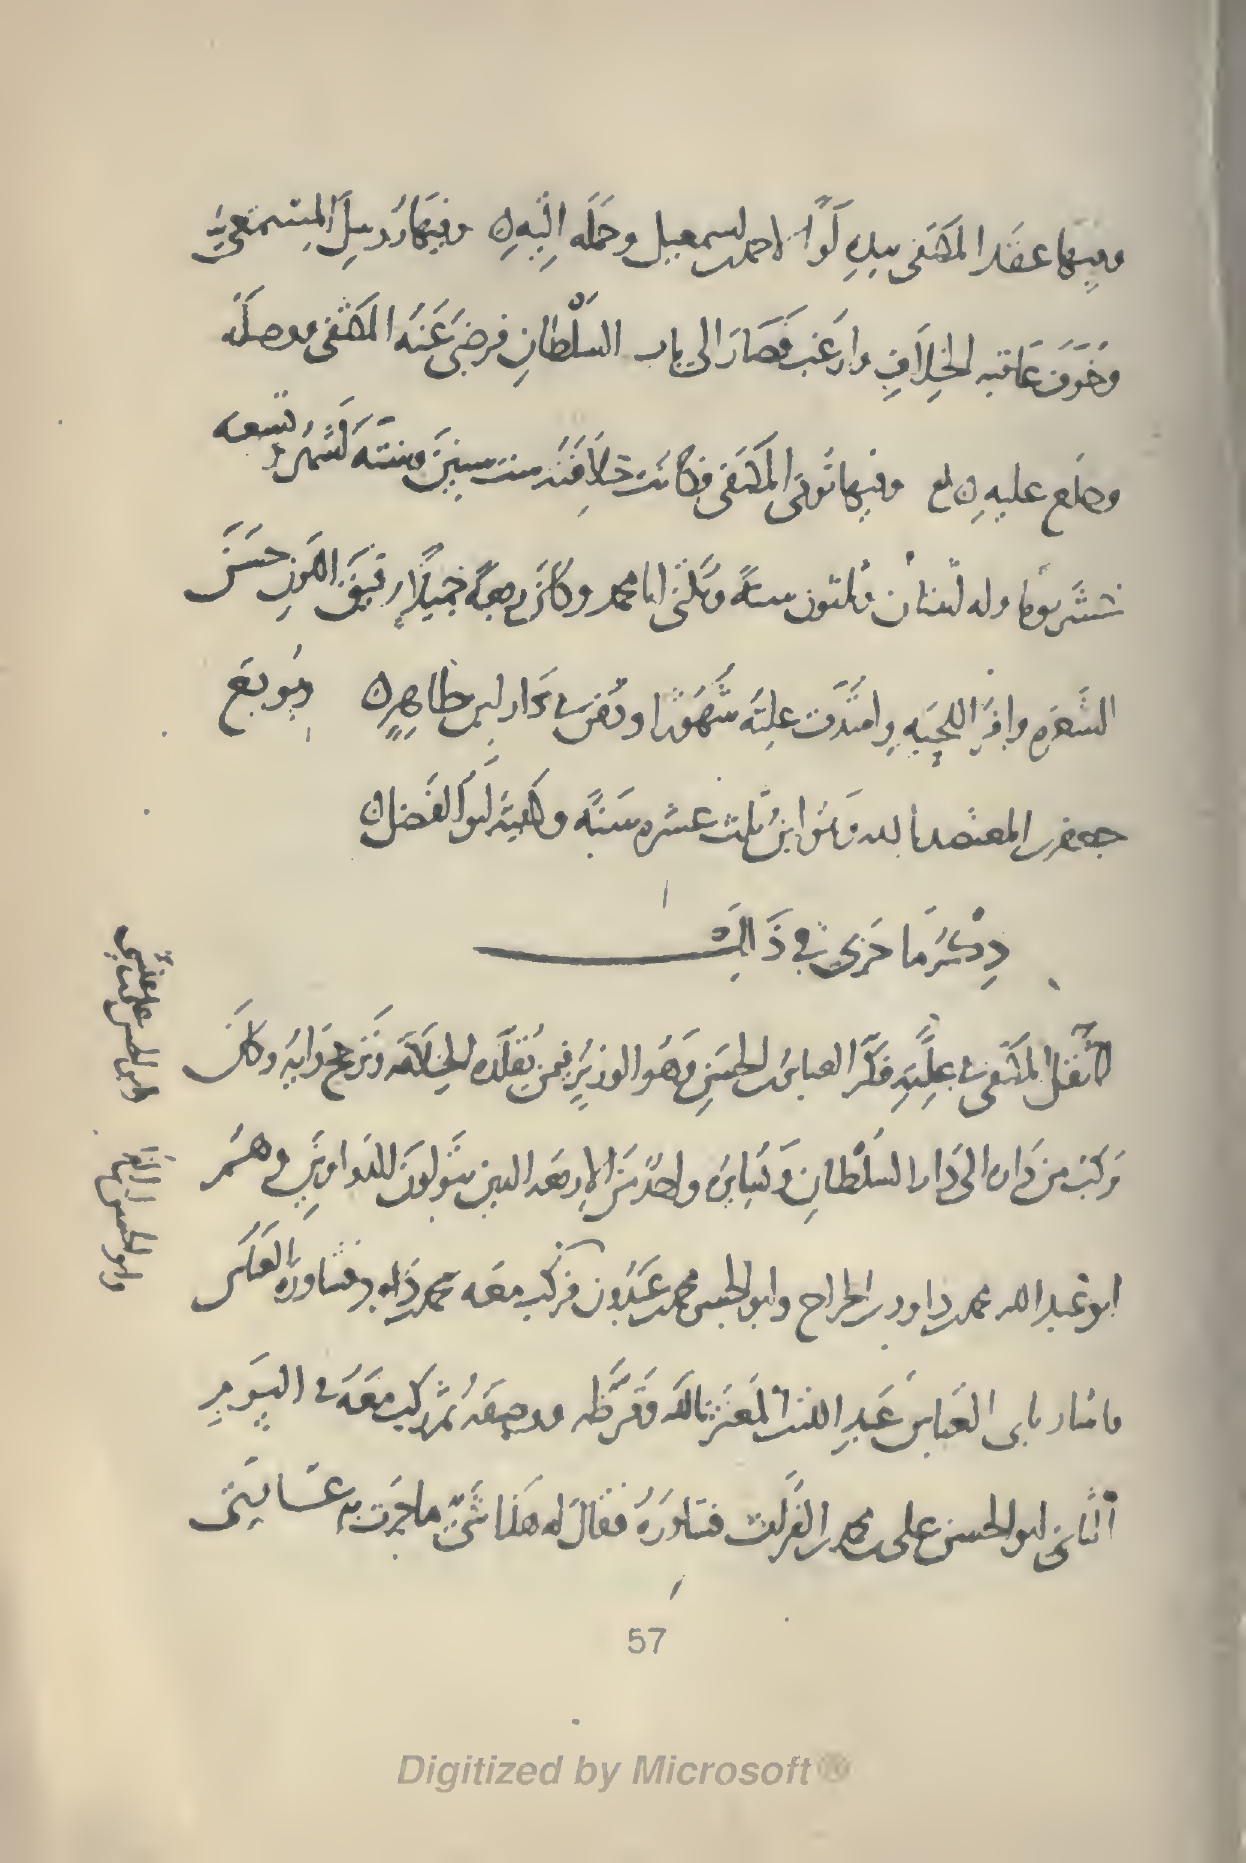 وفيها عقد المكتفى بيده لوآء لاحمد بن اسمعيل وحمله اليه ه وفيها روسل المسمعي
وخوف عاقبه الخلاف وارغب فصار الى باب السلطان فرضي عنه المكتفى ووصله
وخلع عليه ه وفيها توفى المكتفى فكانت خلافته ست سنين وستة اشهر وتسعه
عشر يوما وله اثنان وثلثون سنة ويكنى ابا محمد وكان ربعة جميلا رقيق اللون حسن
الشعر وافر اللحيه وامتدت عليته شهورا ودفن في دار ابن طاهر ه وبويع
جعفر بن المعتضد بالله وسنه ابن ثلث عشره سنة وكنيته ابو الفضل ه
ذكر ما جرى في ذلك
لما ثقل المكتفى في علته فكر العباس بن الحسن وهو الوزير فيمن يقلده الخلافه وترجح رايه وكان
يركب من داره الى دار السلطان ويسايره واحد من الاربعه الذين يتولون الدواوين وهم
ابو عبد الله محمد بن داود بن الجراح وابو الحسن محمد بن عبدون فركب معه محمد بن داود فشاوره العباس
فاشار بابي العباس عبد الله بن المعتز بالله وقرظه ووصفه ثم ركب معه في اليوم
الثاني ابو الحسن علي بن محمد بن الفرات فشاوره فقال له هذا شيء ما جرت به عادتي
وابو الحسن علي بن عيسى
وابو الحسن بن الفرات
57
Digitized by Microsoft®